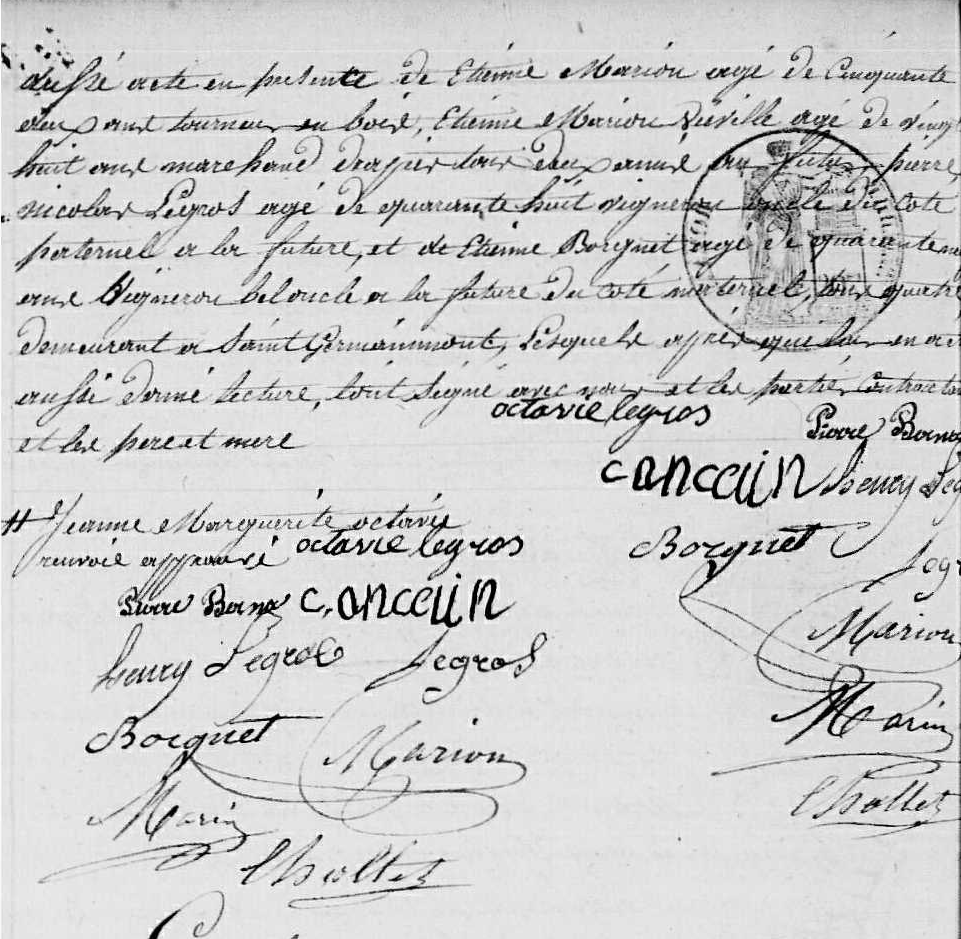 dressé acte en présence de Etienne Marion agé de Cinquante
deux ans tourneur en bois, Etienne Marion Viéville agé de vingt
huit ans marchand drapier tous deux amis au futur, pierre
nicolas Legros agé de quarante huit vigneron oncle du coté
paternel a la future, et de Etienne Borgnet agé de quarante
ans Vigneron bel oncle a la future du coté maternel, tous quatre
demeurant a Saint Germainmont, Lesquels après que leur en a
aussi donné lecture, l'ont Signé avec nous et les parties contracta
et les pere et mere
octavie legros
Pierre
canceiin
henry Leg
Borgnet
Legr
Marion
Marin
Chollet
# Jeanne Marguerite octavie
renvoie approuvé
octavie legros
Pierre
canceiin
henry Legros
Legros
Borgnet
Marion
Marin
Chollet